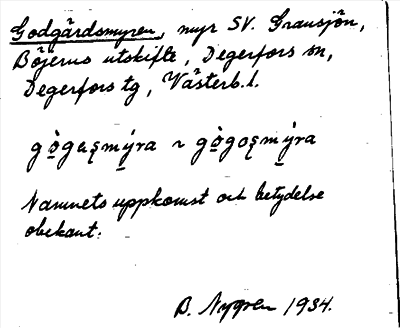 Godgärdsmyren, myr SV. Gransjön,
Böjerns utskifte, Degerfors sn,
Degerfors tg, Västerb. l.
gògaʂmýra ~ gògoʂmýra
Namnets uppkomst och betydelse
obekant.
B. Nygren 1934.